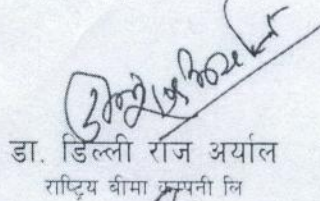 डा. डिल्ली राज अर्याल
राष्ट्रिय बीमा कम्पनी लि